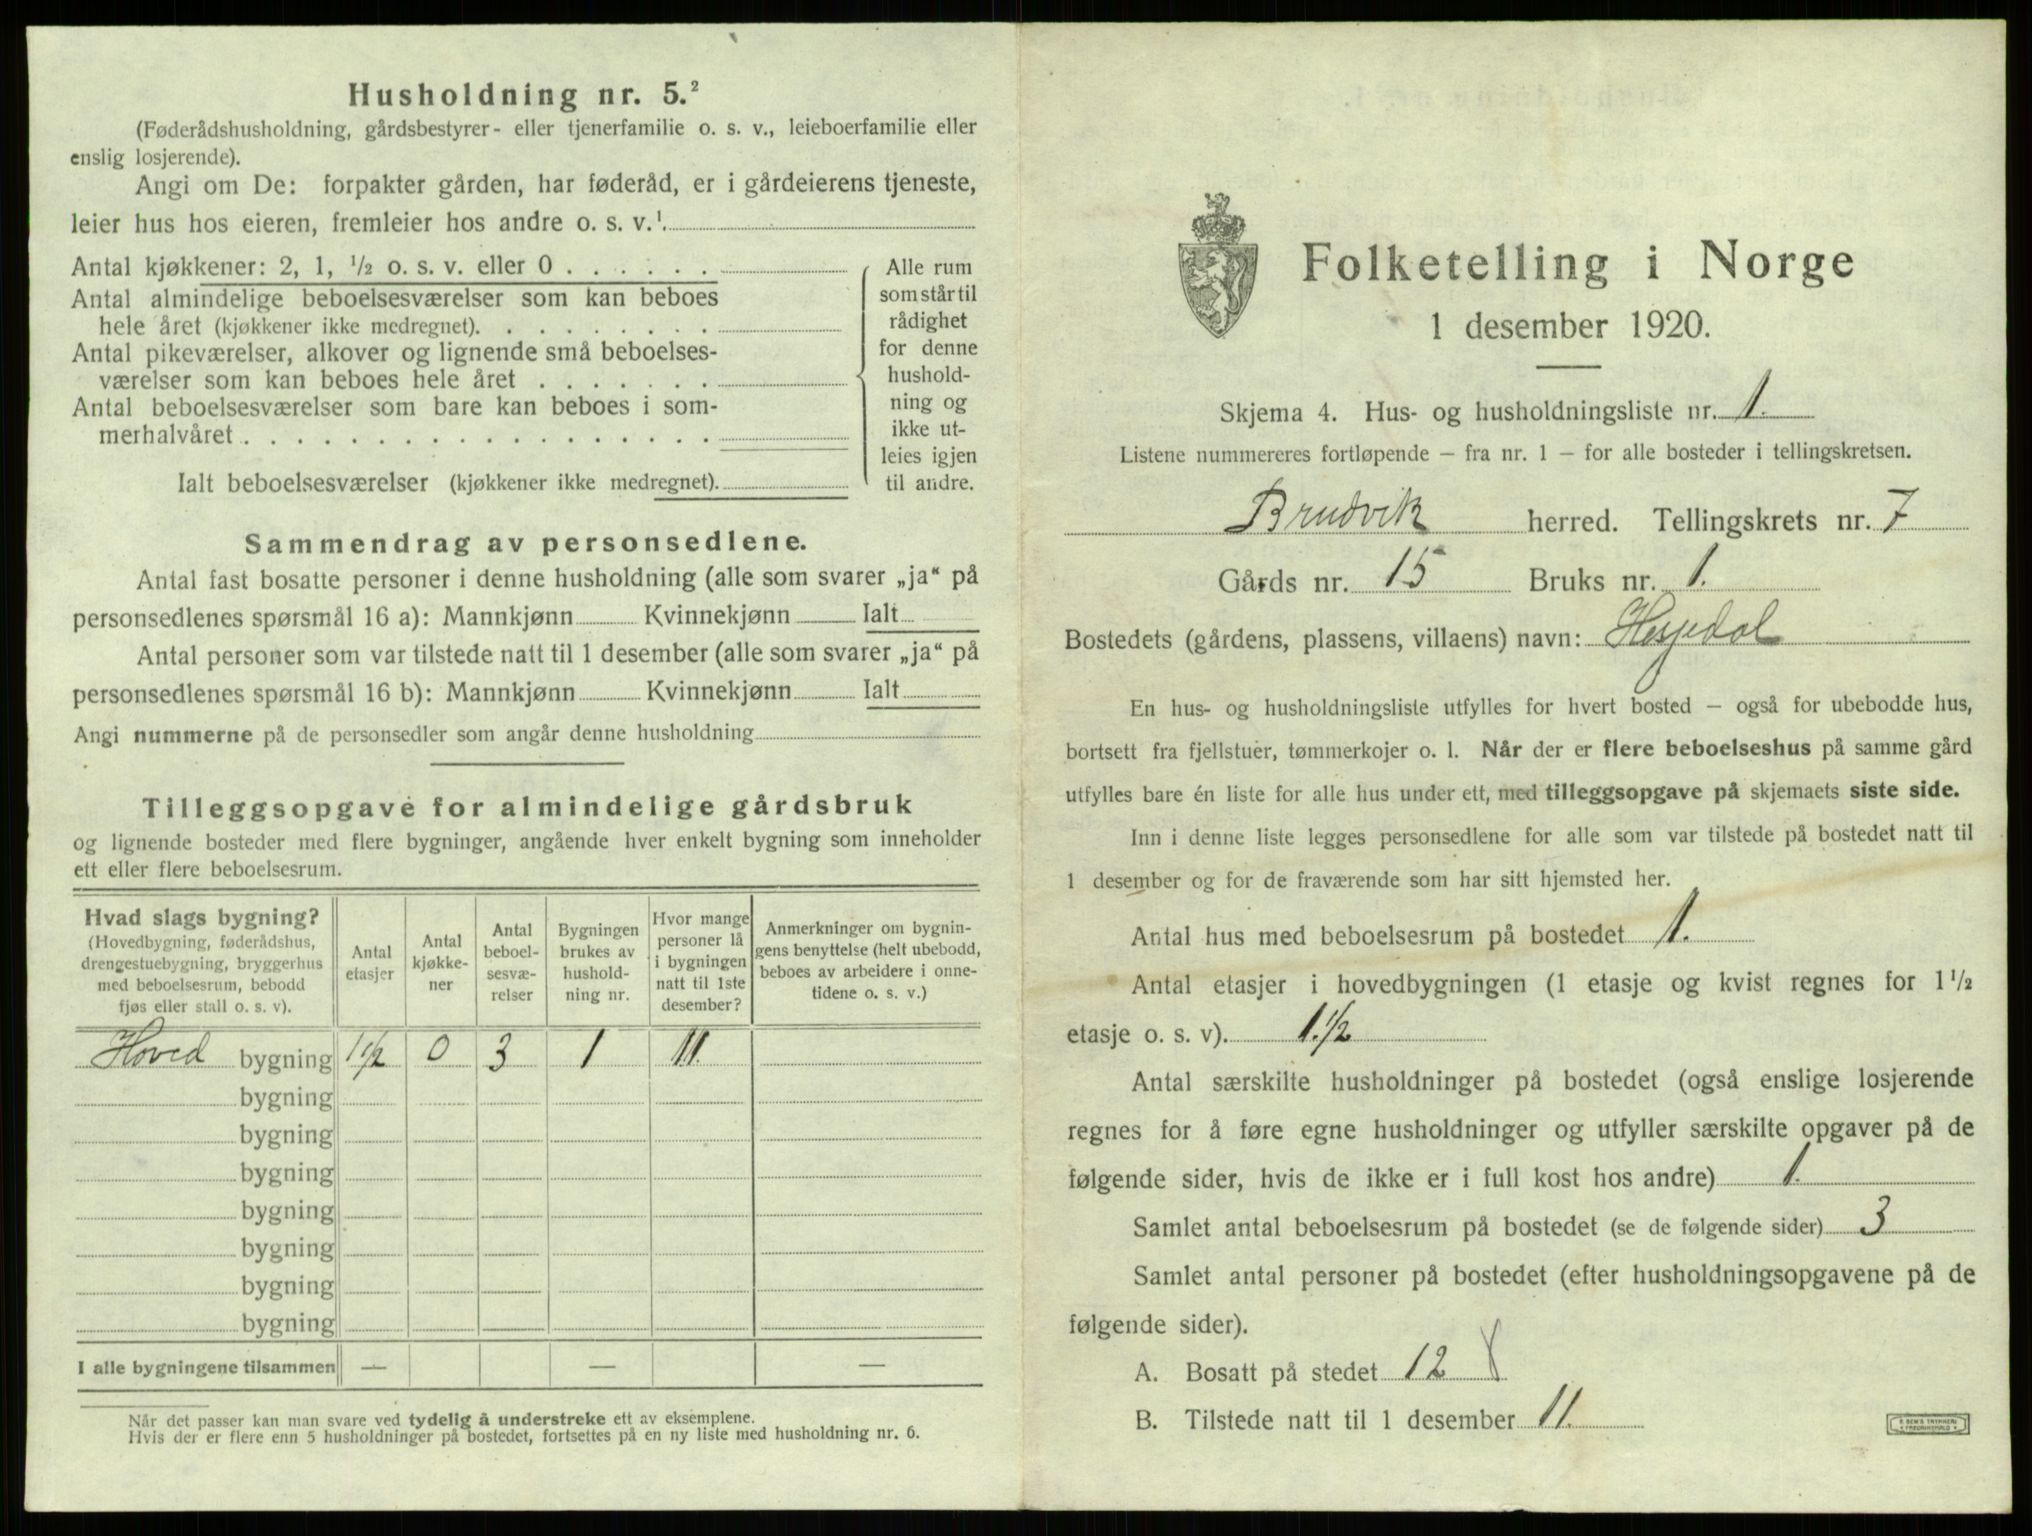 Husholdning nr. 5.²
(Føderådshusholdning, gårdsbestyrer- eller tjenerfamilie o. s. v., leieboerfamilie eller
enslig losjerende).
Angi om De: forpakter gården, har føderåd, er i gårdeierens tjeneste,
leier hus hos eieren, fremleier hos andre o. s. v.¹.
Antal kjøkkener: 2, 1, ½ o. s. v. eller 0 . . . . . .
Antal almindelige beboelsesværelser som kan beboes
hele året (kjøkkener ikke medregnet). . . . . . . . .
Antal pikeværelser, alkover og lignende små beboelses-
værelser som kan beboes hele året . . . . . . .
Antal beboelsesværelser som bare kan beboes i som-
merhalvåret . . . . . . . . . . . . . . . . . .
Ialt beboelsesværelser (kjøkkener ikke medregnet).
Alle rum
som står til
rådighet
for denne
hushold-
ning og
ikke ut-
leies igjen
til andre.
Sammendrag av personsedlene.
Antal fast bosatte personer i denne husholdning (alle som svarer „ja“ på
personsedlenes spørsmål 16 a): Mannkjønn Kvinnekjønn Ialt
Antal personer som var tilstede natt til 1 desember (alle som svarer „ja“ på
personsedlenes spørsmål 16 b): Mannkjønn Kvinnekjønn Ialt
Angi nummerne på de personsedler som angår denne husholdning
Tilleggsopgave for almindelige gårdsbruk
og lignende bosteder med flere bygninger, angående hver enkelt bygning som inneholder
ett eller flere beboelsesrum.
Hvad slags bygning?
(Hovedbygning, føderådshus,
drengestuebygning, bryggerhus
med beboelsesrum, bebodd
fjøs eller stall o. s. v).
Antal
etasjer
Antal
kjøkke-
ner
Antal
beboel-
sesvæ-
relser
Bygningen
brukes av
hushold-
ning nr.
Hvor mange
personer lå
i bygningen
natt til 1ste
desember?
Anmerkninger om bygnin-
gens benyttelse (helt ubebodd,
beboes av arbeidere i onne-
tidene o. s. v.)
Hoved bygning 1½ 0 3 1 11.
bygning
bygning
bygning
bygning
bygning
bygning
bygning
I alle bygningene tilsammen — — —
Når det passer kan man svare ved tydelig å understreke ett av eksemplene.
Hvis der er flere enn 5 husholdninger på bostedet, fortsettes på en ny liste med husholdning nr. 6.
Folketelling i Norge
1 desember 1920.
Skjema 4. Hus- og husholdningsliste nr. 1.
Listene nummereres fortløpende — fra nr. 1 — for alle bosteder i tellingskretsen.
Bruvik herred. Tellingskrets nr. 7
Gårds nr. 15 Bruks nr. 1.
Bostedets (gårdens, plassens, villaens) navn: Hesjedal
En hus- og husholdningsliste utfylles for hvert bosted — også for ubebodde hus,
bortsett fra fjellstuer, tømmerkojer o. l. Når der er flere beboelseshus på samme gård
utfylles bare én liste for alle hus under ett, med tilleggsopgave på skjemaets siste side.
Inn i denne liste legges personsedlene for alle som var tilstede på bostedet natt til
1 desember og for de fraværende som har sitt hjemsted her.
Antal hus med beboelsesrum på bostedet 1.
Antal etasjer i hovedbygningen (1 etasje og kvist regnes for 1½
etasje o. s. v). 1.½
Antal særskilte husholdninger på bostedet (også enslige losjerende
regnes for å føre egne husholdninger og utfyller særskilte opgaver på de
følgende sider, hvis de ikke er i full kost hos andre) 1.
Samlet antal beboelsesrum på bostedet (se de følgende sider) 3
Samlet antal personer på bostedet (efter husholdningsopgavene på de
følgende sider).
A. Bosatt på stedet 12
B. Tilstede natt til 1 desember 11.